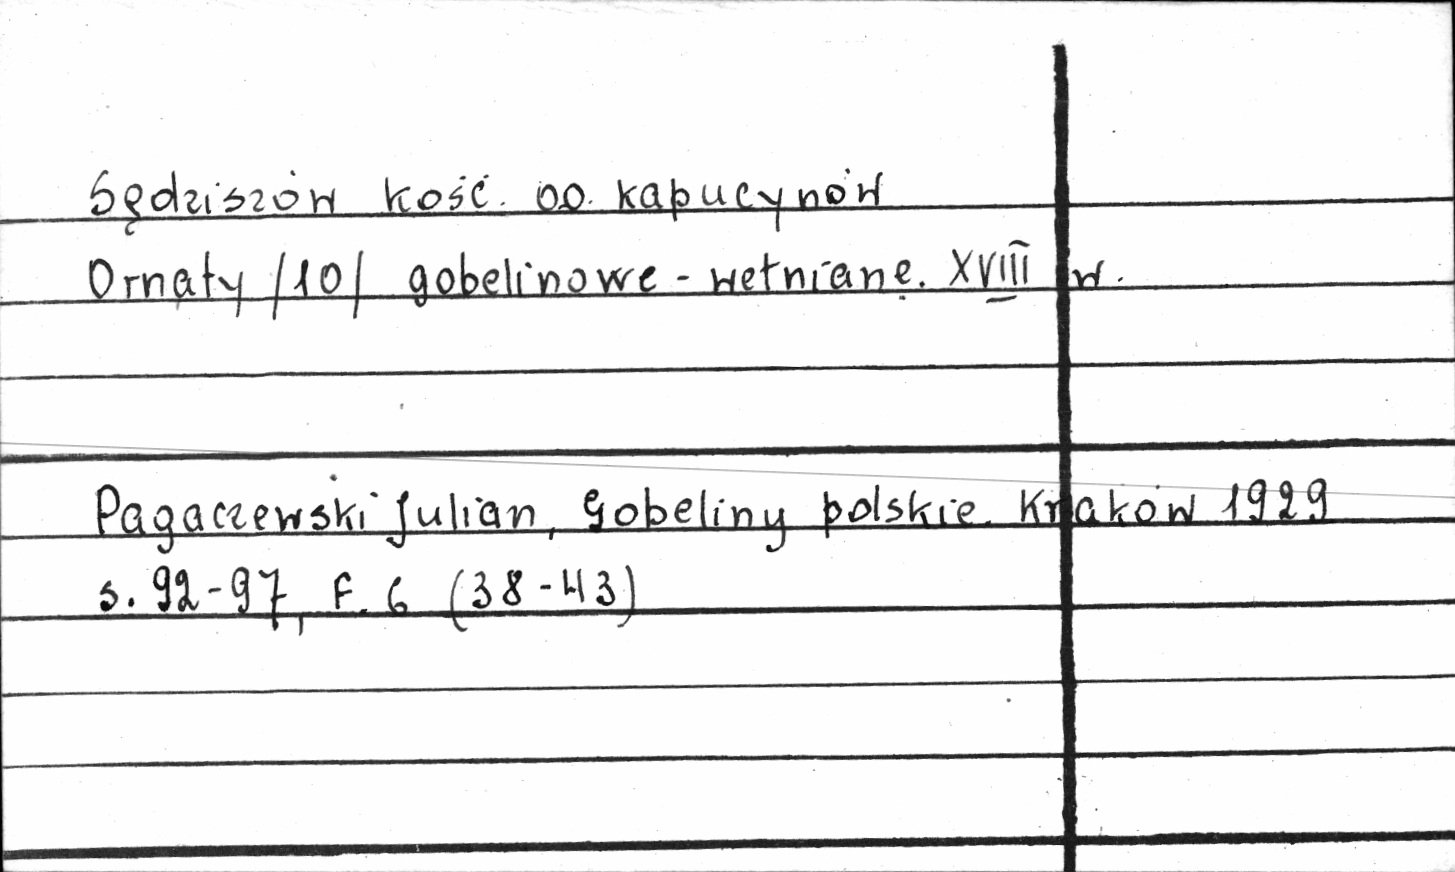 Sędziszów kość. OO. kapucynów
Ornaty /10/ gobelinowe - wełniane. XVIII w.
Pagaczewski Julian, Gobeliny polskie. Kraków 1929
s. 92-97, F. 6 (38-43)